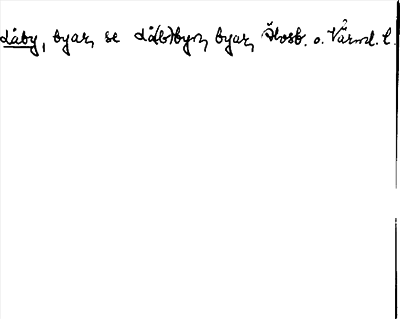 dåby, byar, se då(b)byn, byar, Skosb. o. Värmd. l.